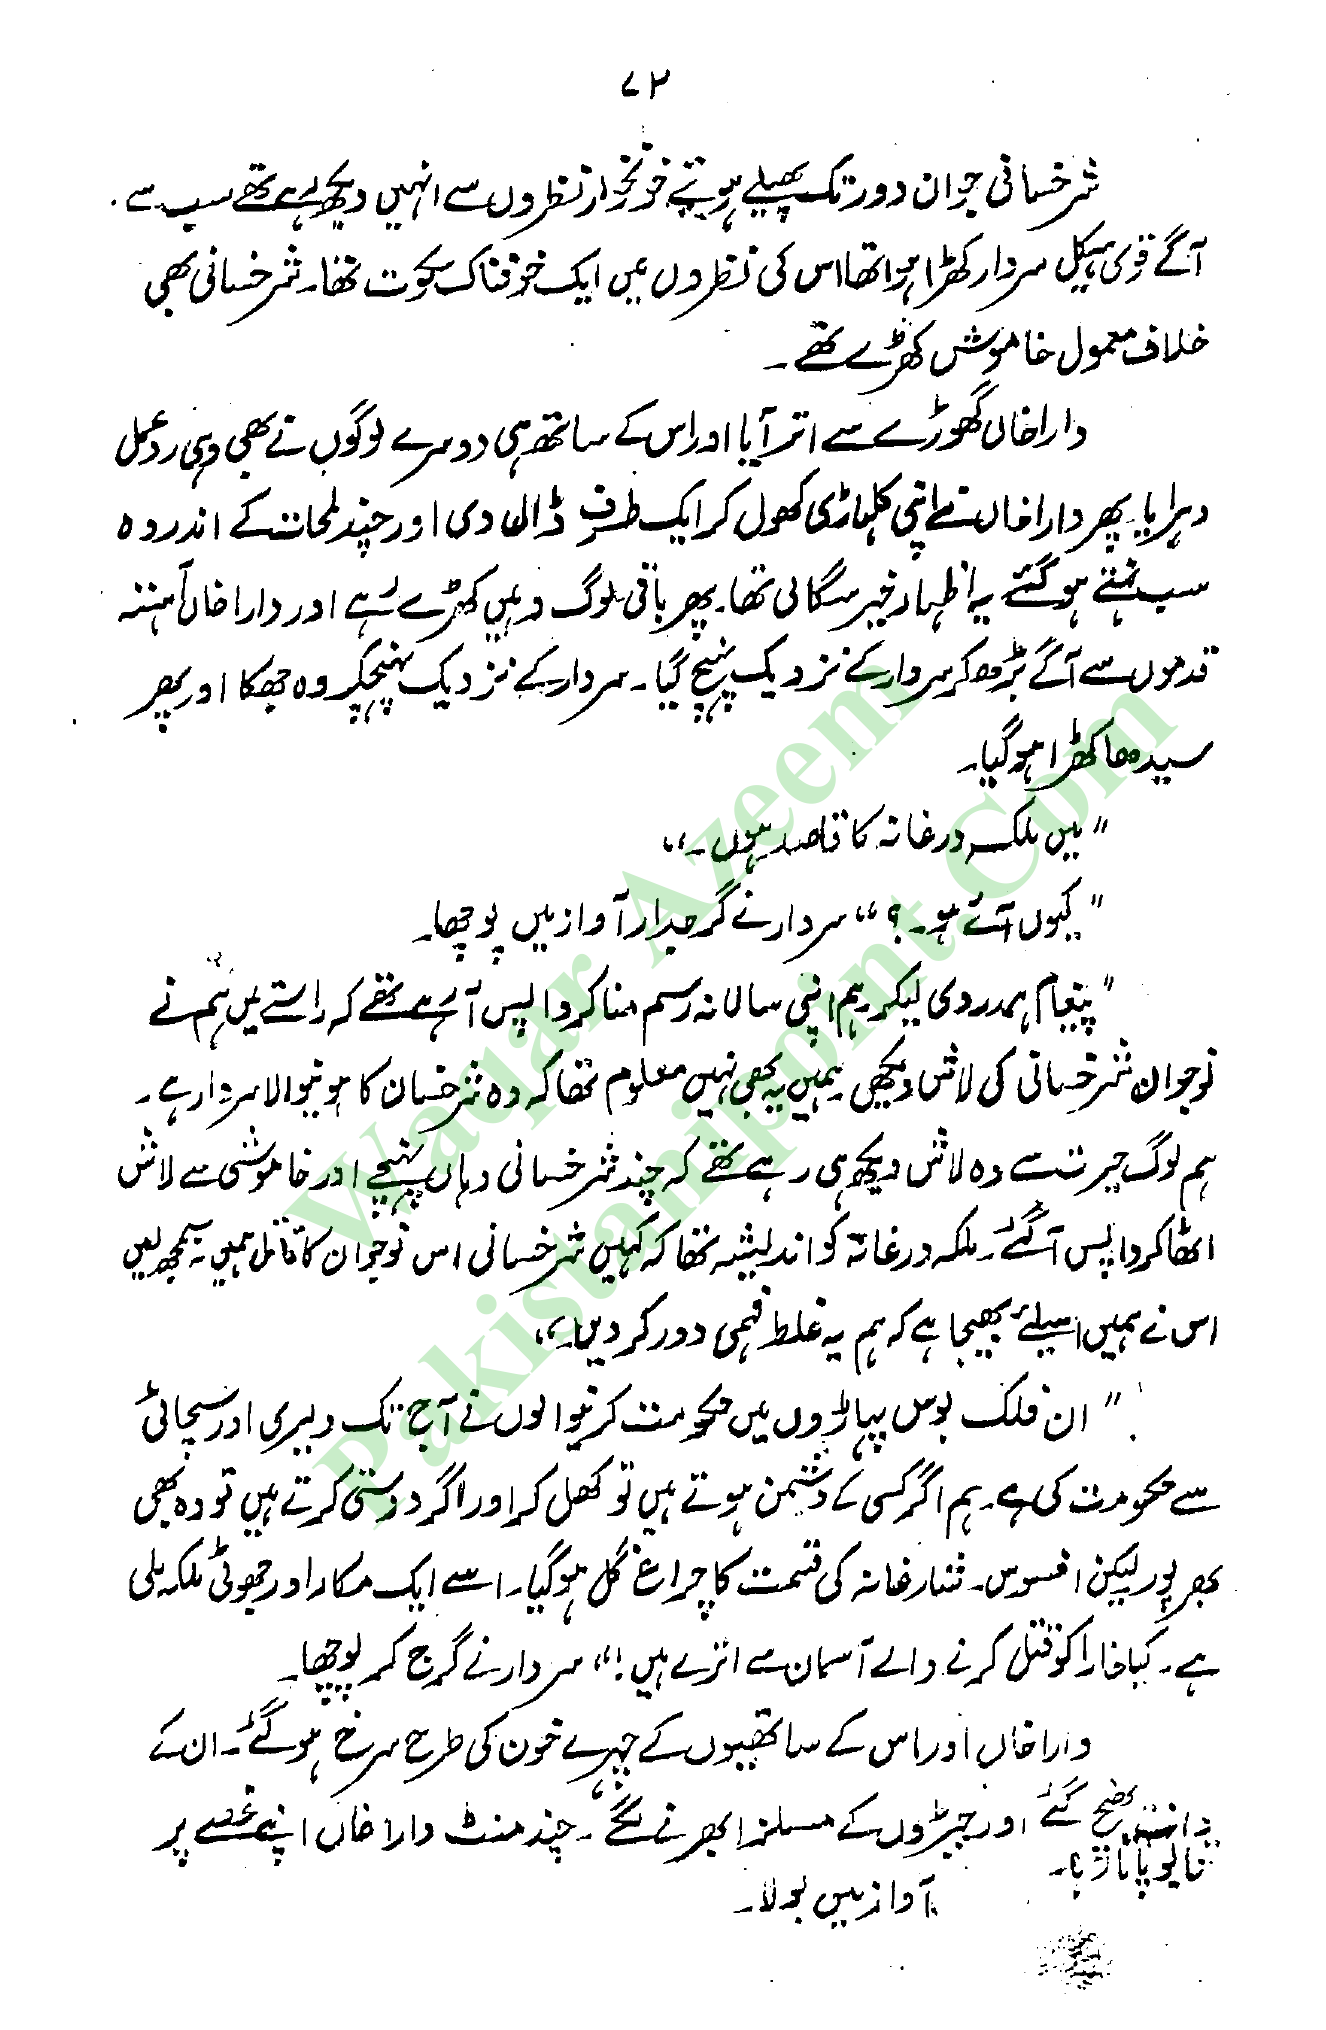 ۷۲
شرخسانی جوان دور تک پھیلے ہوئے خونخوار نظروں سے انہیں دیکھ رہے تھے سب سے
آگے قوی ہیکل سردار کھڑا ہوا تھا اس کی نظروں میں ایک خوفناک سکوت تھا۔ شرخسانی بھی
خلاف معمول خاموش کھڑے تھے۔
دارا خاں گھوڑے سے اتر آیا اور اس کے ساتھ ہی دوسرے لوگوں نے بھی وہی ردعمل
دہرایا۔ پھر دارا خاں نے اپنی کلہاڑی کھول کر ایک طرف ڈال دی اور چند لمحات کے اندر وہ
سب نہتے ہو گئے یہ اظہار خیر سگالی تھا۔ پھر باقی لوگ وہیں کھڑے رہے اور دارا خاں آہستہ
قدموں سے آگے بڑھ کر سردار کے نزدیک پہنچ گیا۔ سردار کے نزدیک پہنچکر وہ جھکا اور پھر
سیدھا کھڑا ہو گیا۔
"میں ملکہ درغانہ کا قاصد ہوں۔"
"کیوں آئے ہو۔؟" سردار نے گرجدار آواز میں پوچھا۔
"پیغام ہمدردی لیکر۔ ہم اپنی سالانہ رسم منا کر واپس آ رہے تھے کہ راستے میں ہم نے
نوجوان شرخسانی کی لاش دیکھی۔ ہمیں یہ بھی نہیں معلوم تھا کہ وہ شرخسان کا ہونیوالا سردار ہے۔
ہم لوگ حیرت سے وہ لاش دیکھ ہی رہے تھے کہ چند شرخسانی وہاں پہنچے اور خاموشی سے لاش
اٹھا کر واپس آ گئے۔ ملکہ درغانہ کو اندیشہ تھا کہ کہیں شرخسانی اس نوجوان کا قاتل ہمیں نہ سمجھ لیں
اس نے ہمیں اسیلئے بھیجا ہے کہ ہم یہ غلط فہمی دور کر دیں۔"
"ان فلک بوس پہاڑوں میں حکومت کرنیوالوں نے آج تک دلیری اور سچائی
سے حکومت کی ہے۔ ہم اگر کسی کے دشمن ہوتے ہیں تو کھل کر اور اگر دوستی کرتے ہیں تو وہ بھی
بھرپور لیکن افسوس۔ شارغانہ کی قسمت کا چراغ گل ہو گیا۔ اسے ایک مکار اور جھوٹی ملکہ ملی
ہے۔ کیا خارا کو قتل کرنے والے آسمان سے اترے ہیں؟" سردار نے گرج کر پوچھا۔
دارا خاں اور اس کے ساتھیوں کے چہرے خون کی طرح سرخ ہو گئے۔ ان کے
دانت بھنچ گئے اور جبڑوں کے مسلز ابھرنے لگے۔ چند منٹ دارا خاں اپنے غصے پر
قابو پاتا رہا۔
آواز میں بولا۔
Waqar Azeem
Pakistanipoint.Com